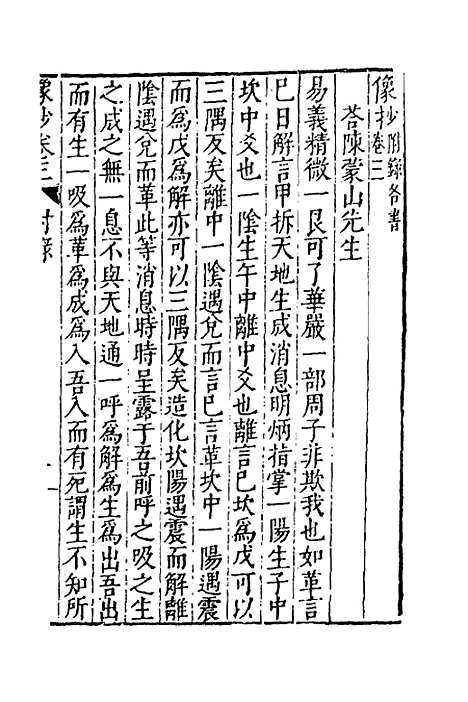 像抄卷三 附錄各書
荅陳蒙山先生
易義精微一艮可了華嚴一部周子非欺我也如革言
巳日解言甲拆天地生成消息明炳指掌一陽生子中
坎中爻也一陰生午中離中爻也離言巳坎爲戊可以
三隅反矣離中一陰遇兌而言巳言革坎中一陽遇震
而爲戊爲解亦可以三隅反矣造化坎陽遇震而解離
陰遇兌而革此等消息時時呈露于吾前呼之吸之生
之成之無一息不與天地通一呼爲解爲生爲出吾出
而有生一吸爲革爲成爲入吾入而有死謂生不知所
像抄卷三 附錄 一